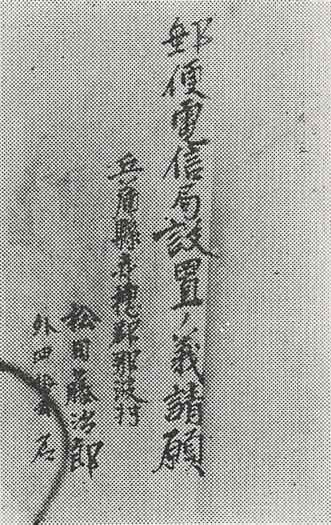 郵便電信局設置ノ義請願
兵庫縣赤穂郡那波村
松田藤治郎
外四